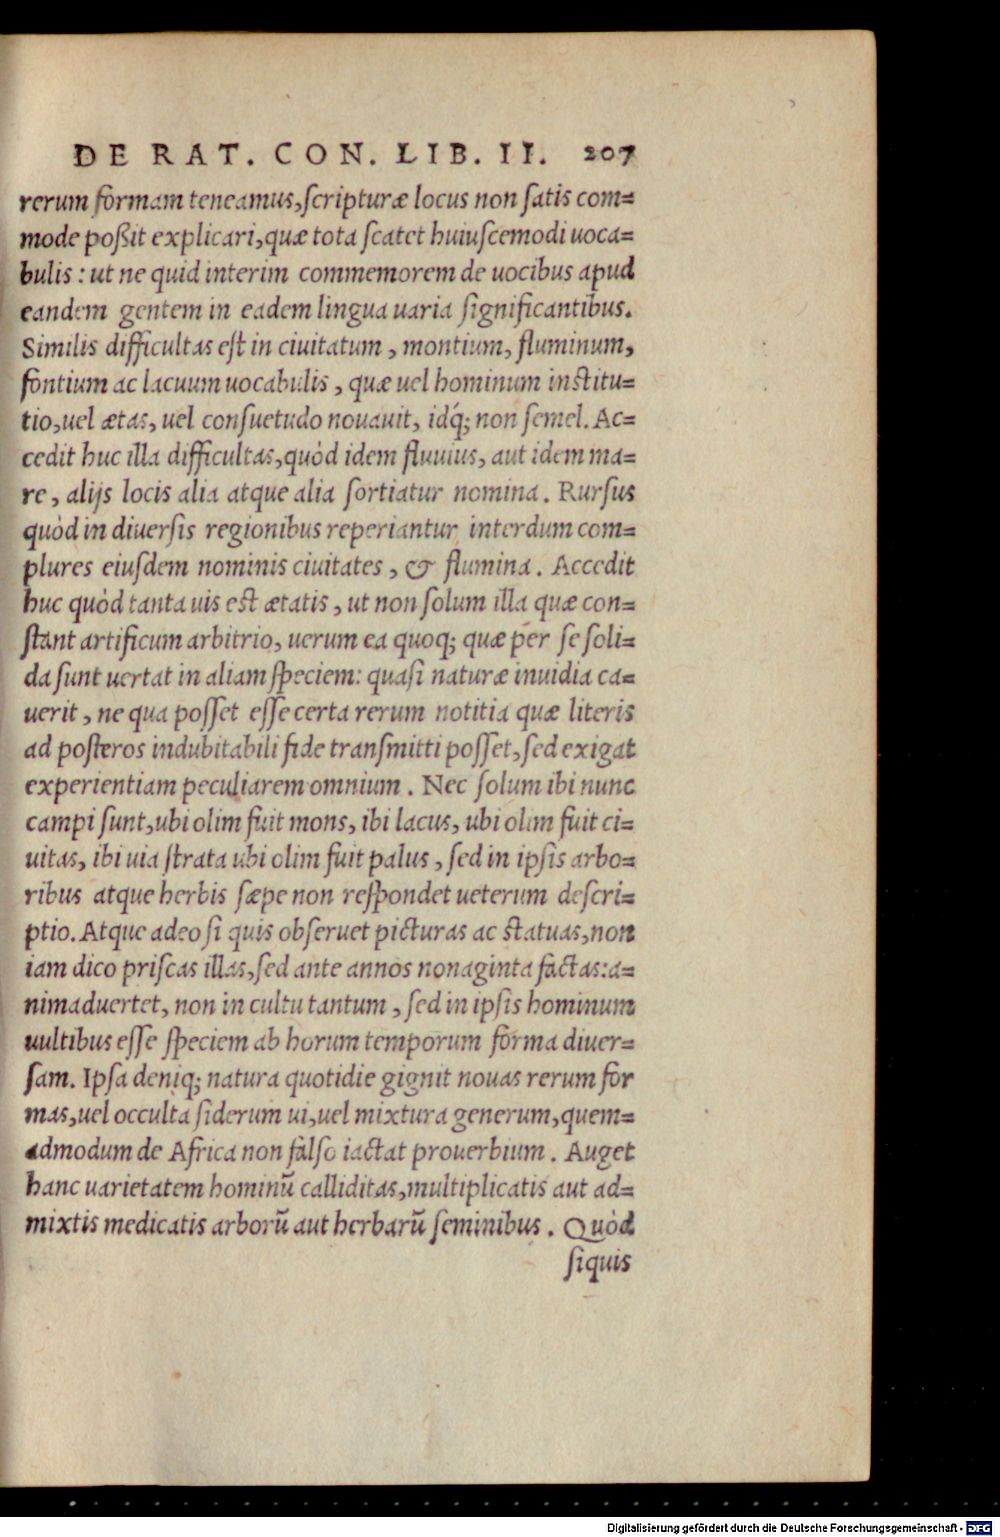 DE RAT. CON. LIB. II. 207
rerum formam teneamus,ſcripturæ locus non ſatis com=
mode poßit explicari,quæ tota ſcatet huiuſcemodi uoca=
bulis : ut ne quid interim commemorem de uocibus apud
eandem gentem in eadem lingua uaria ſignificantibus.
Similis difficultas eſt in ciuitatum , montium, fluminum,
fontium ac lacuum uocabulis , quæ uel hominum inſtitu=
tio,uel ætas, uel conſuetudo nouauit, idq́; non ſemel. Ac=
cedit huc illa difficultas,quòd idem fluuius, aut idem ma=
re , alijs locis alia atque alia ſortiatur nomina . Rurſus
quòd in diuerſis regionibus reperiantur interdum com=
plures eiuſdem nominis ciuitates , & flumina . Accedit
huc quòd tanta uis eſt ætatis , ut non ſolum illa quæ con=
ſtant artificum arbitrio, uerum ea quoq; quæ per ſe ſoli=
da ſunt uertat in aliam ſpeciem: quaſi naturæ inuidia ca=
uerit , ne qua poſſet eſſe certa rerum notitia quæ literis
ad poſteros indubitabili fide tranſmitti poſſet,ſed exigat
experientiam peculiarem omnium . Nec ſolum ibi nunc
campi ſunt,ubi olim fuit mons, ibi lacus, ubi olim fuit ci=
uitas, ibi uia ſtrata ubi olim fuit palus , ſed in ipſis arbo=
ribus atque herbis ſæpe non reſpondet ueterum deſcri=
ptio. Atque adeo ſi quis obſeruet picturas ac ſtatuas,non
iam dico priſcas illas,ſed ante annos nonaginta factas:a=
nimaduertet, non in cultu tantum , ſed in ipſis hominum
uultibus eſſe ſpeciem ab horum temporum forma diuer=
ſam. Ipſa deniq; natura quotidie gignit nouas rerum for
mas,uel occulta ſiderum ui,uel mixtura generum,quem=
admodum de Africa non falſo iactat prouerbium . Auget
hanc uarietatem hominū calliditas,multiplicatis aut ad=
mixtis medicatis arborū aut herbarū ſeminibus . Quòd
ſiquis
Digitalisierung gefördert durch die Deutsche Forschungsgemeinschaft - DFG